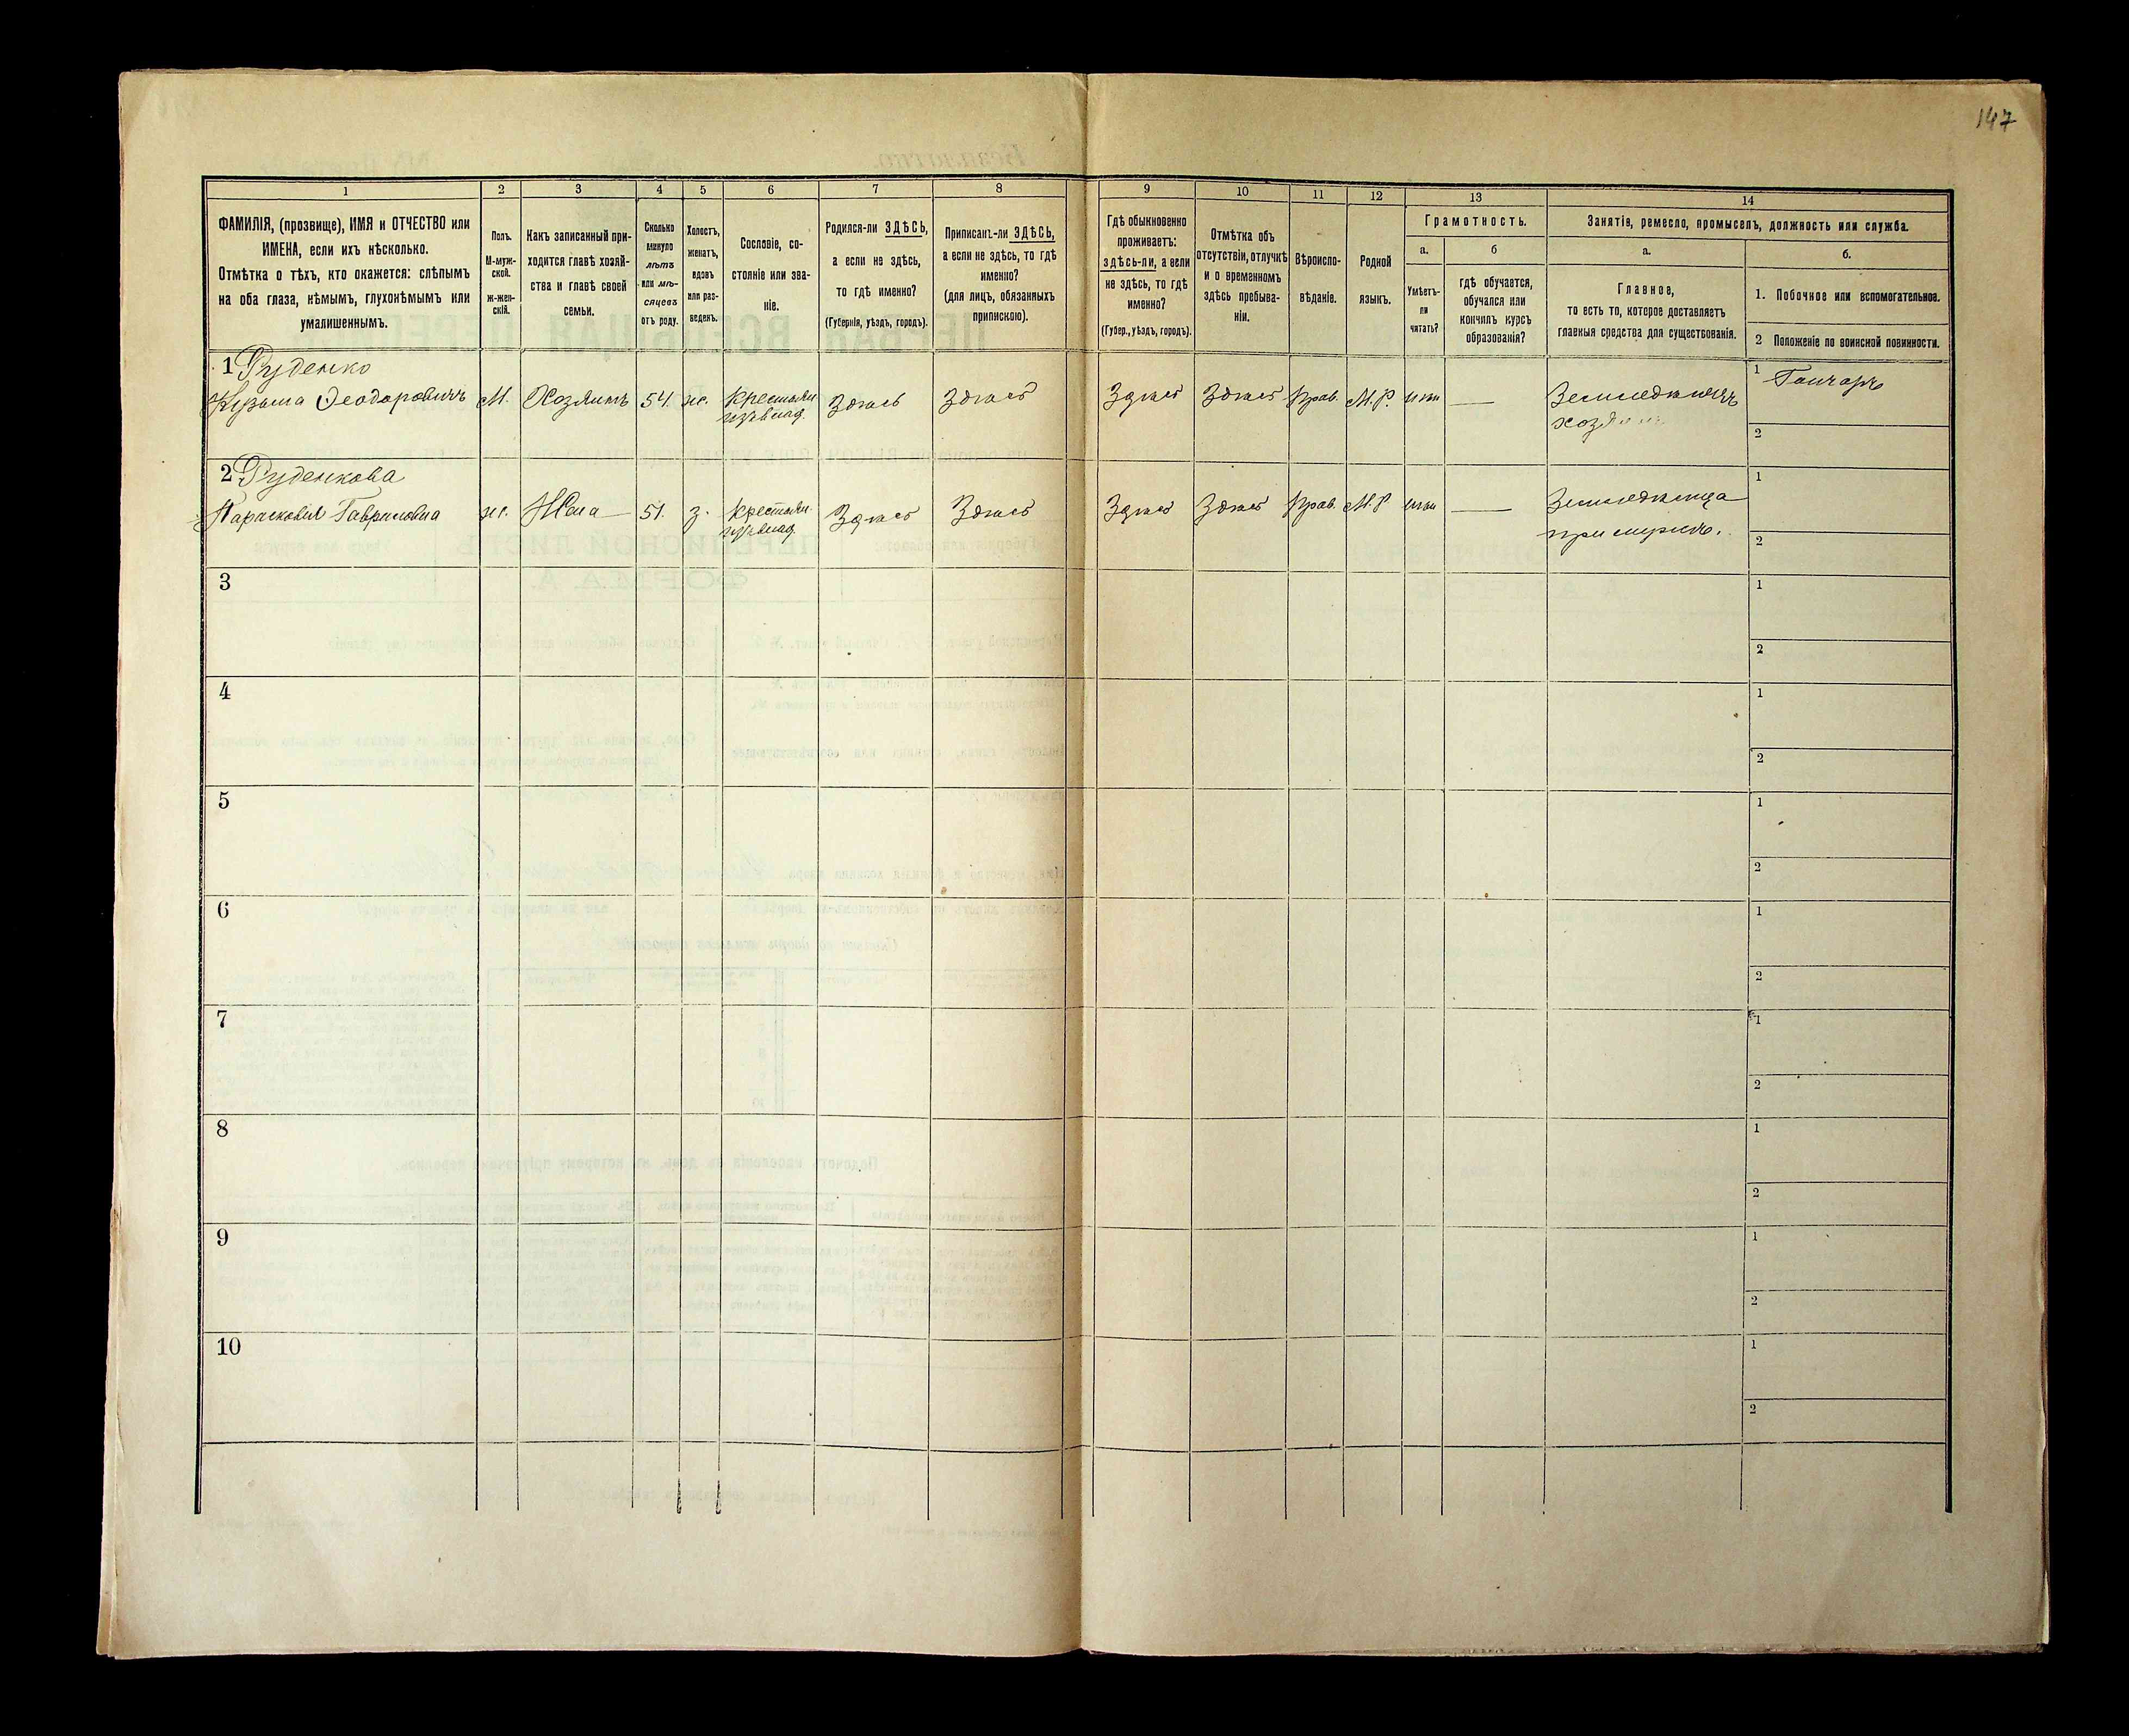 147
1
2
3
4
5
6
7
8
9
10
11
12
13
14
ФАМИЛІЯ, (прозвище), ИМЯ и ОТЧЕСТВО или
ИМЕНА, если ихъ нѣсколько.
Отмѣтка о тѣхъ, кто окажется: слѣпымъ
на оба глаза, нѣмымъ, глухонѣмымъ или
умалишеннымъ.
Полъ.
М-муж-
ской.
ж-жен-
скій.
Какъ записанный при-
ходится главѣ хозяй-
ства и главѣ своей
семьи.
Сколько
минуло
лѣтъ
или мѣ-
сяцевъ
отъ роду.
Холостъ,
женатъ,
вдовъ
или раз-
веденъ.
Сословіе, со-
стояніе или зва-
ніе.
Родился-ли ЗДѢСЬ,
а если не здѣсь,
то гдѣ именно?
(Губернія, уѣздъ, городъ).
Приписанъ-ли ЗДѢСЬ,
а если не здѣсь, то гдѣ
именно?
(для лицъ, обязанныхъ
припискою).
Гдѣ обыкновенно
проживаетъ:
здѣсь-ли, а если
не здѣсь, то гдѣ
именно?
(Губер., уѣздъ, городъ).
Отмѣтка объ
отсутствіи, отлучкѣ
и о временномъ
здѣсь пребыва-
ніи.
Вѣроиспо-
вѣданіе.
Родной
языкъ.
Грамотность.
а.
Умѣетъ-
ли
читать?
б
гдѣ обучается,
обучался или
кончилъ курсъ
образованія?
Занятія, ремесло, промыселъ, должность или служба.
а.
Главное,
то есть то, которое доставляетъ
главныя средства для существованія.
б.
1. Побочное или вспомогательное.
2 Положеніе по воинской повинности.
1 Руденко
Кузьма Ѳеодоровичъ
М.
Хозяинъ
54.
ж.
Крестьян.
изъ влад.
Здѣсь
Здѣсь
Здѣсь
Здѣсь
Прав.
М.Р.
нѣт
—
Земледѣлецъ
хозяинъ
1 Гончаръ
2
2 Руденкова
Парасковия Гавриловна
ж.
Жена
51.
з.
Крестьян.
изъ влад.
Здѣсь
Здѣсь
Здѣсь
Здѣсь
Прав.
М.Р
нѣт
—
Земледѣлица
при мужѣ.
1
2
3
1
2
4
1
2
5
1
2
6
1
2
7
1
2
8
1
2
9
1
2
10
1
2